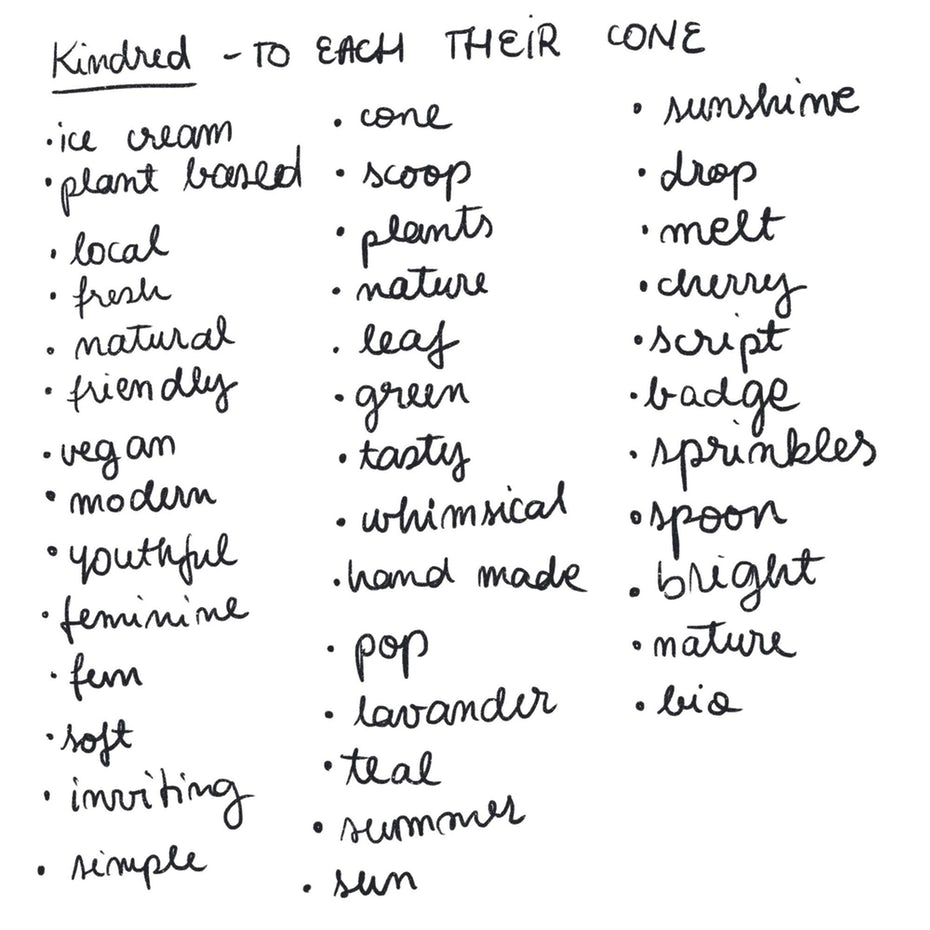 Kindred - TO EACH THEIR CONE
• ice cream
• plant based
• local
• fresh
• natural
• friendly
• vegan
• modern
• youthful
• feminine
• fem
• soft
• inviting
• simple
• cone
• scoop
• plants
• nature
• leaf
• green
• tasty
• whimsical
• hand made
• pop
• lavander
• teal
• summer
• sun
• sunshine
• drop
• melt
• cherry
• script
• badge
• sprinkles
• spoon
• bright
• nature
• bio